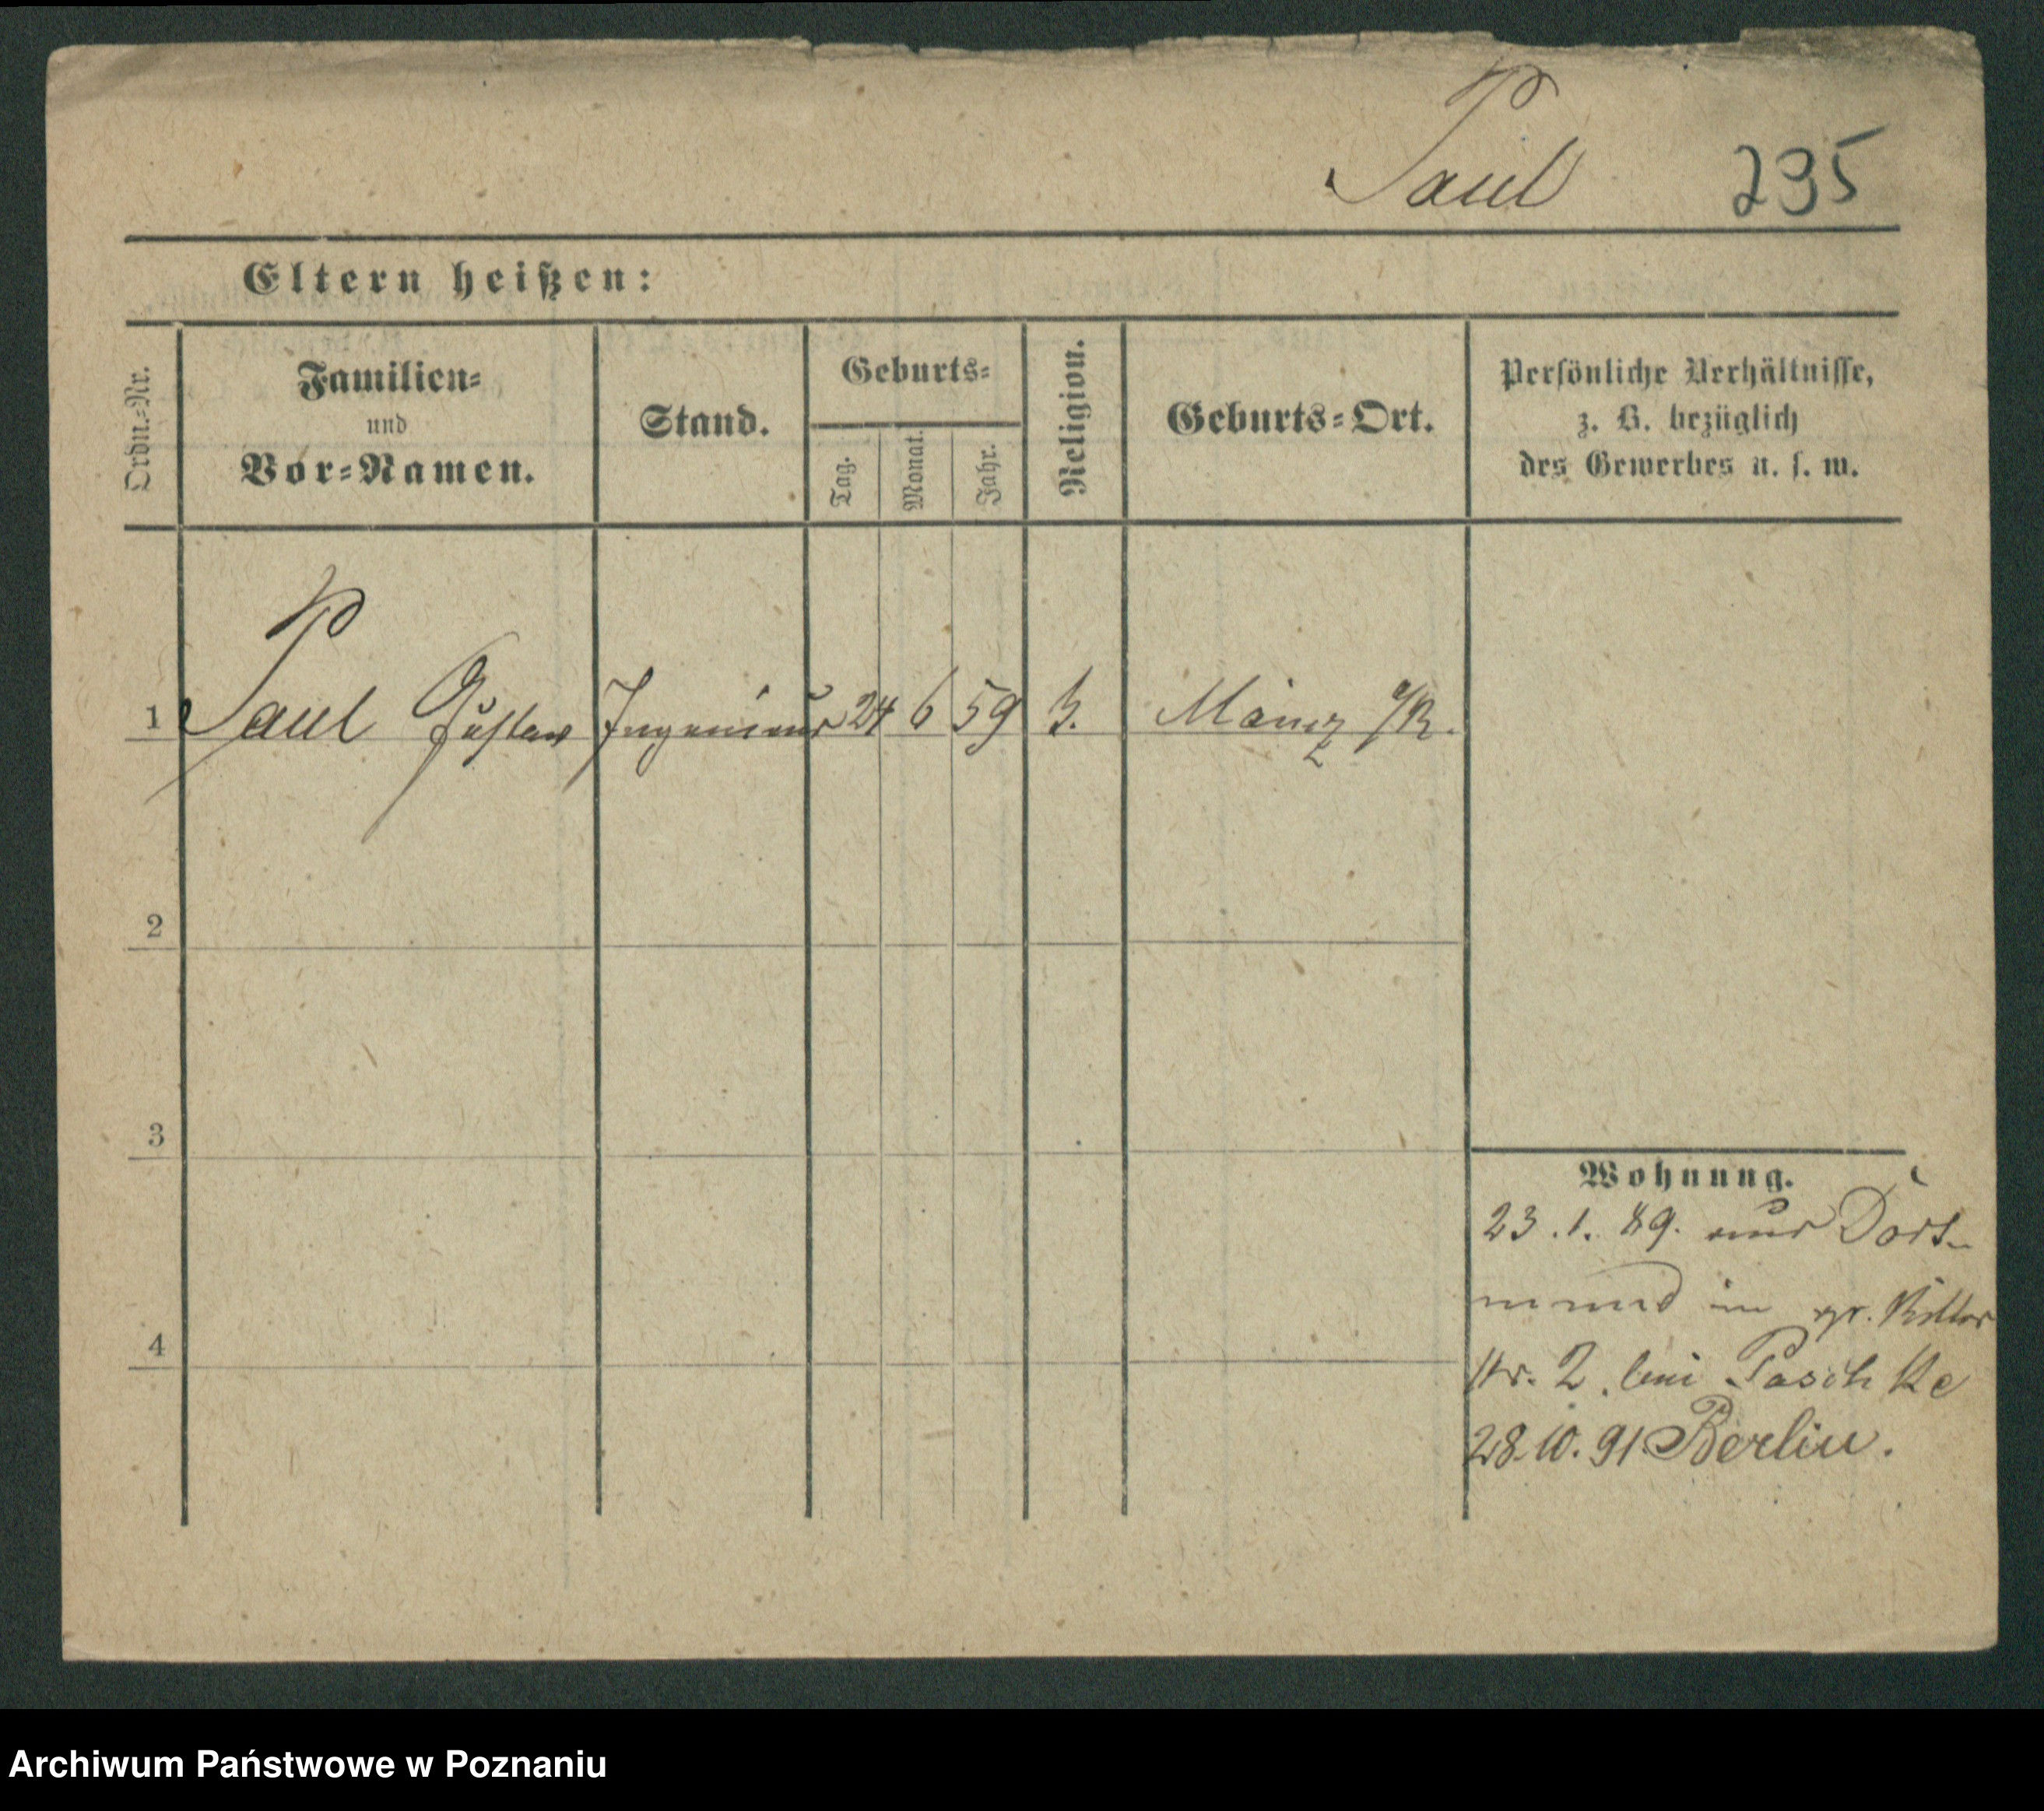 Paul 295
Eltern heißen:
Ordn.-Nr.
Familien-
und
Vor-Namen.
Stand.
Geburts-
Tag.
Monat.
Jahr.
Religion.
Geburts-Ort.
Persönliche Verhältnisse,
z. B. bezüglich
des Gewerbes u. s. w.
1 Paul Gustav Ingenieur 24 6 59 Mainz a/R.
2
3
4
Wohnung.
23.1.89. aus Dort-
mund in gr. Ritter
str. 2. bei Paschke
28.10.91 Berlin.
Archiwum Państwowe w Poznaniu